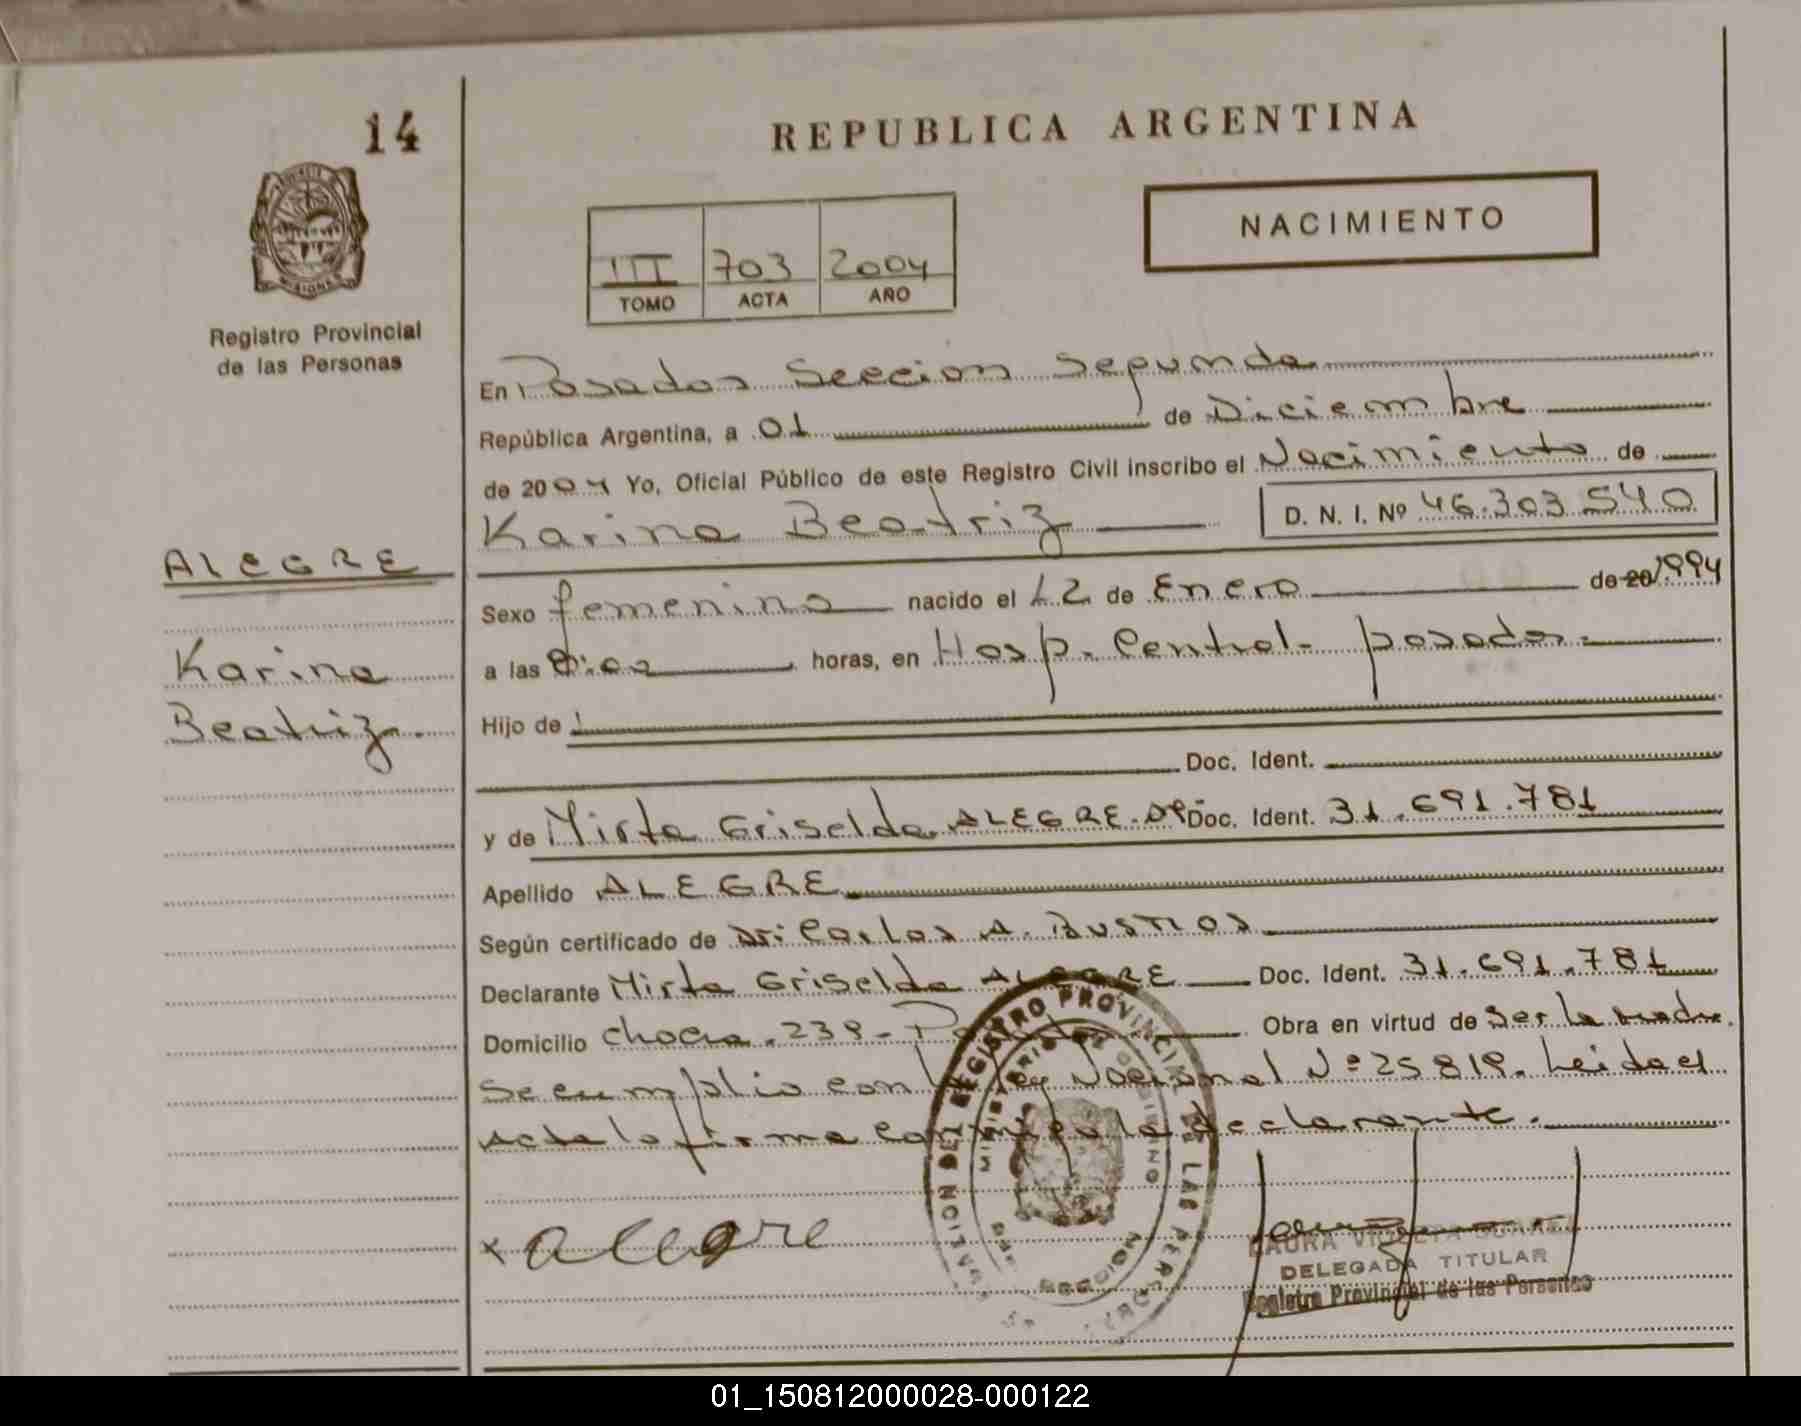 14
REPUBLICA ARGENTINA
NACIMIENTO
III 703 2004
TOMO ACTA AÑO
MISIONES
Registro Provincial
de las Personas
En Posadas Seccion Segunda
República Argentina, a 01 de Diciembre
de 2004 Yo, Oficial Público de este Registro Civil inscribo el Nacimiento de
Karina Beatriz D. N. I. Nº 46.303.540
ALEGRE
Karina
Beatriz.
Sexo femenino nacido el 12 de Enero de 20 1994
a las horas, en Hosp. Central - posadas -
Hijo de
Doc. Ident.
y de Mirta Griselda ALEGRE. Doc. Ident. 31.691.781
Apellido ALEGRE
Según certificado de Dr: Carlos A. BUSTOS
Declarante Mirta Griselda ALEGRE Doc. Ident. 31.691.781
Domicilio 239 - Obra en virtud de ser la madre.
Se cumplio con Ley Nacional Nº 25819. Leida el
Acta la firma conmigo la declarante.
x Alegre
REGISTRO PROVINCIAL DE LAS PERS
MINISTERIO DE GOBIERNO
LAURA VIOLETA SUAREZ
DELEGADA TITULAR
Registro Provincial de las Personas
01_150812000028-000122